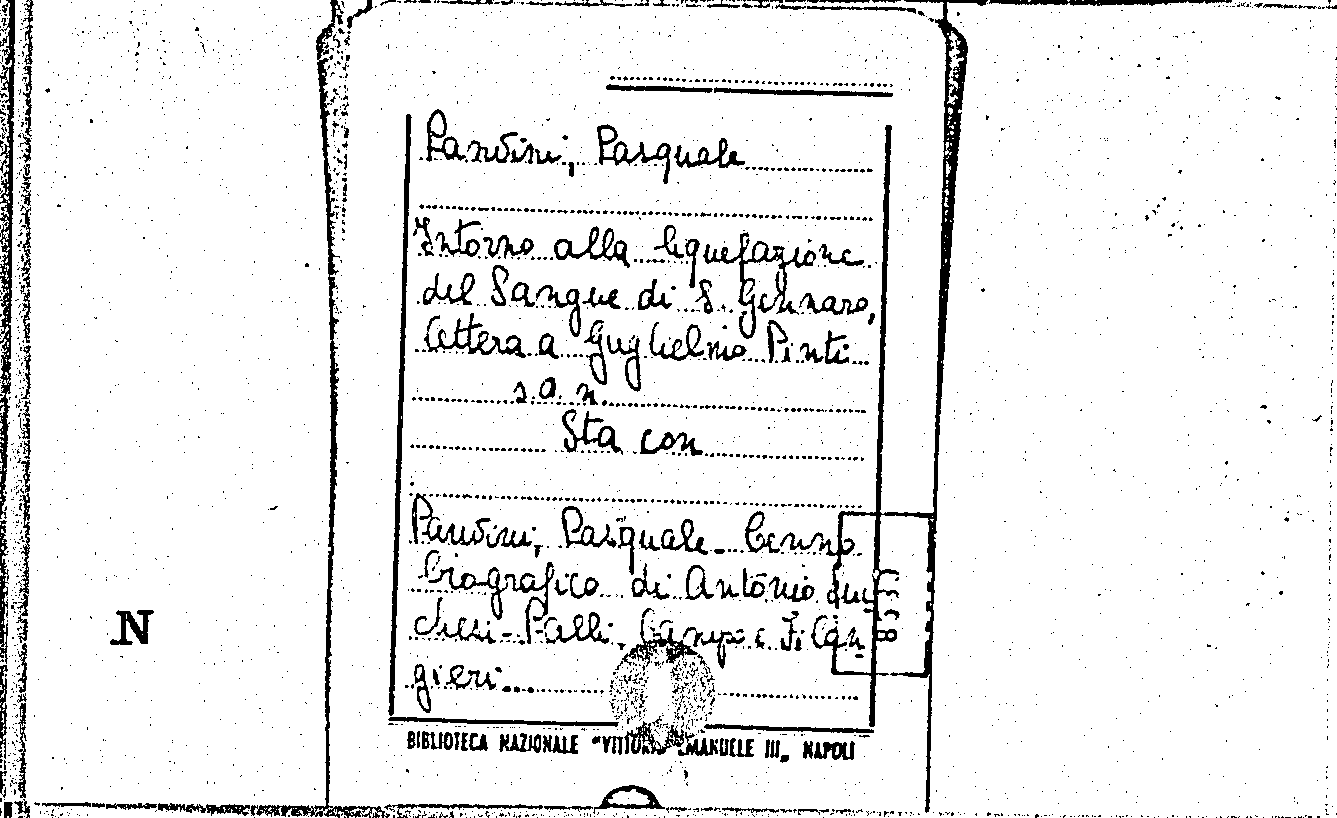 Pandini, Pasquale
Intorno alla liquefazione
del Sangue di S. Gennaro,
lettera a Guglielmo Pinti
s.a.n.
Sta con
Pandini, Pasquale - Cenno
biografico di Antonio
chesi-Palli, Campo e Filan-
gieri...
N
BIBLIOTECA NAZIONALE "VITTORIO EMANUELE III„ NAPOLI